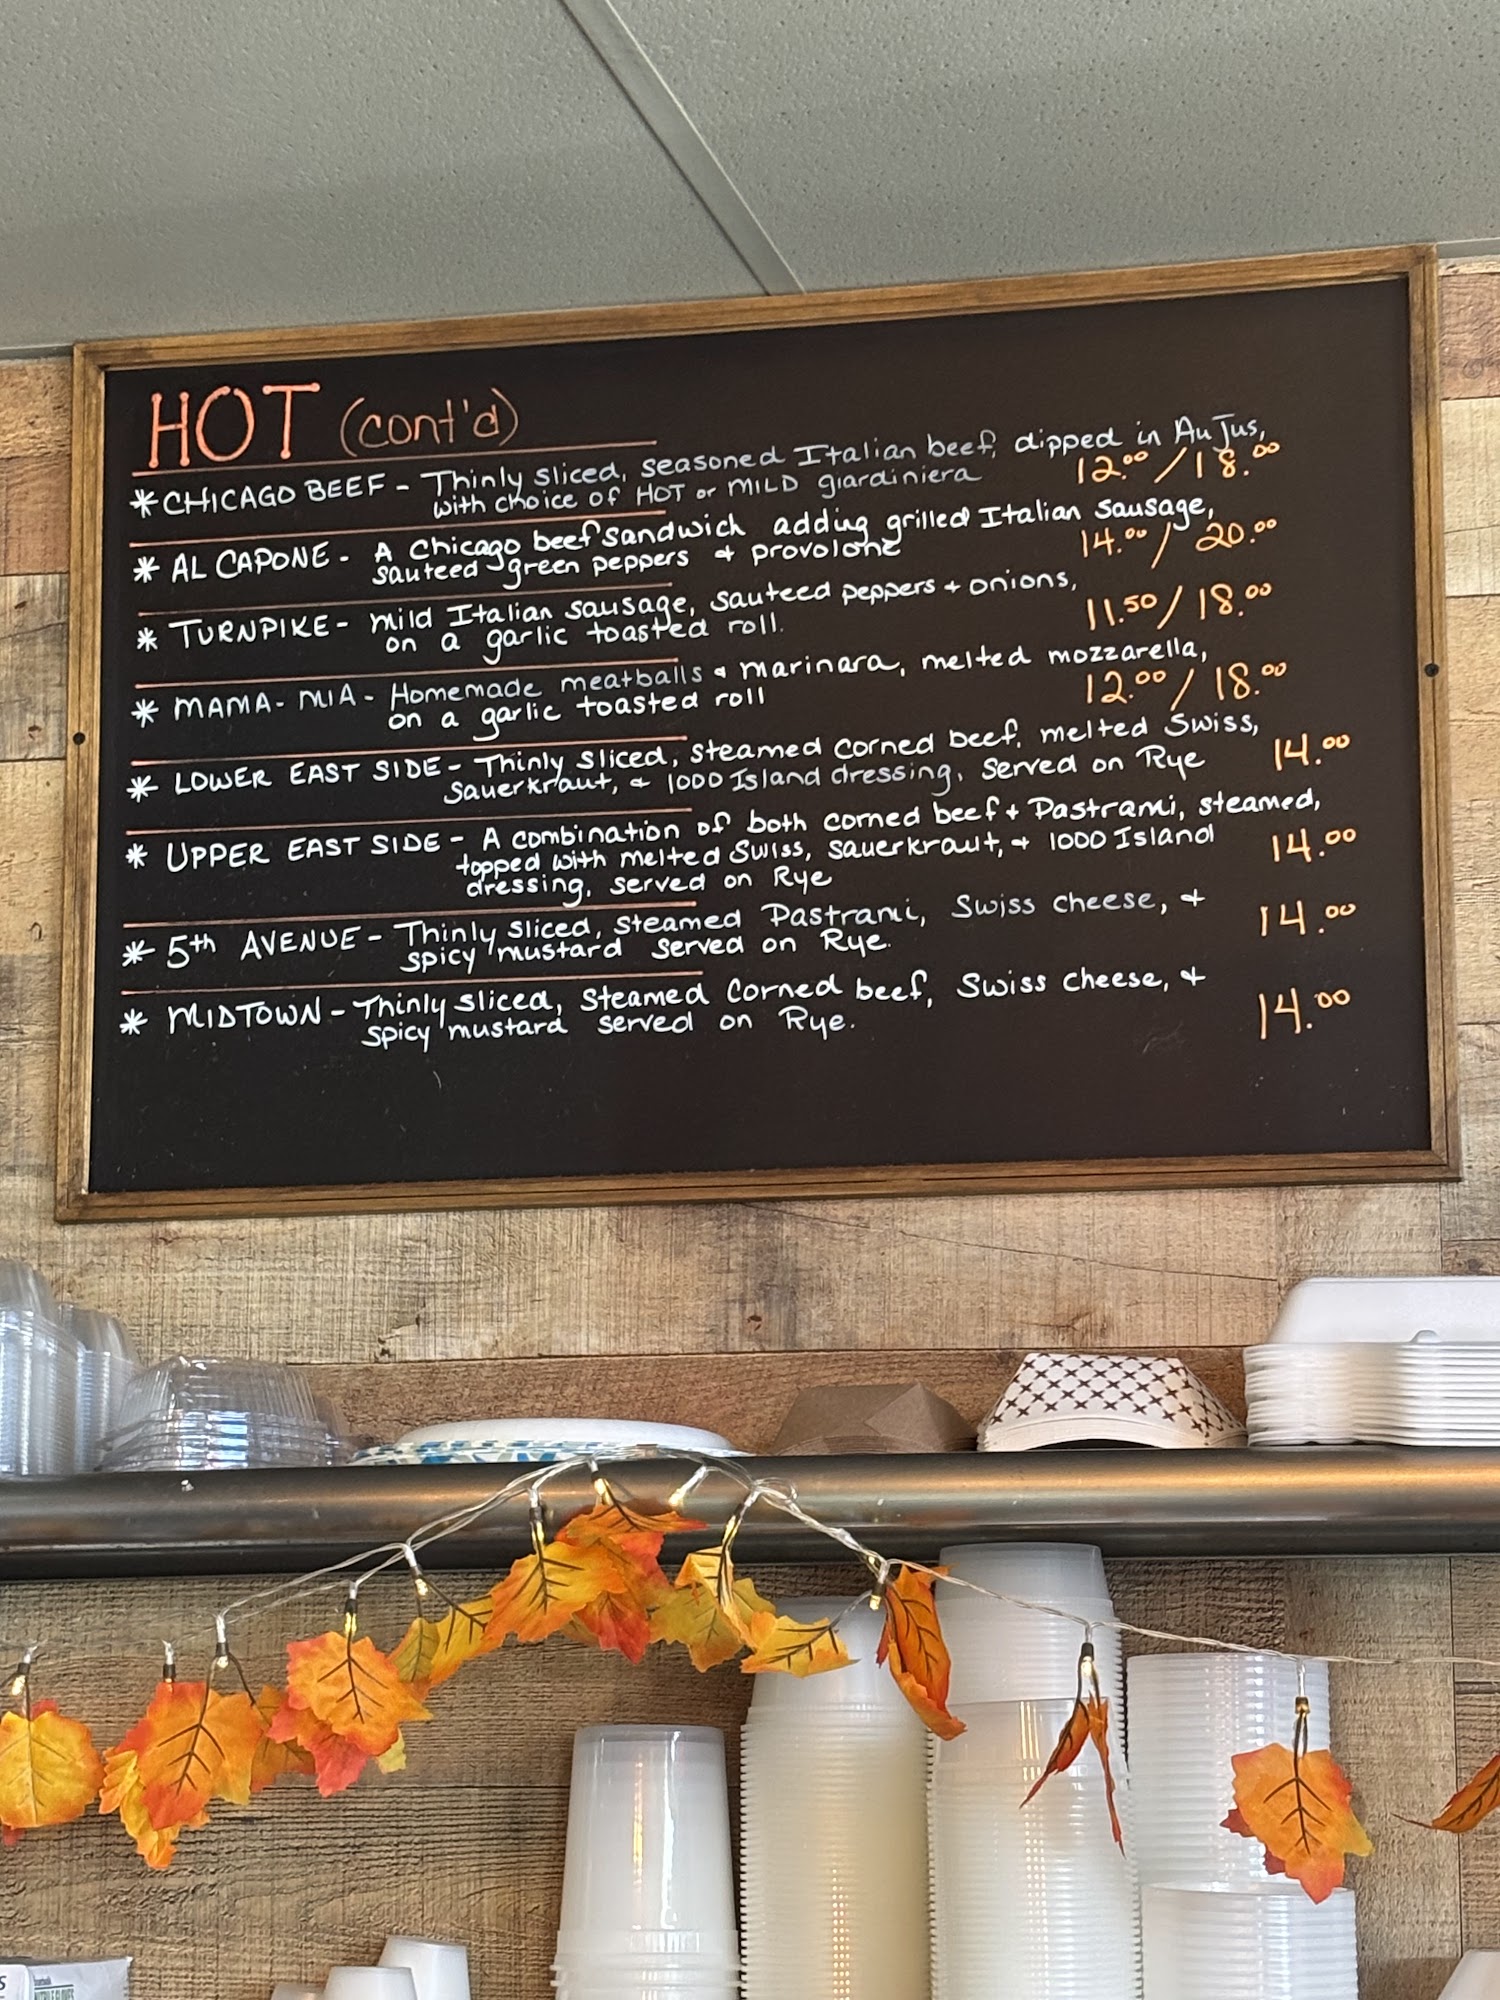 HOT (cont'd)
* CHICAGO BEEF - Thinly sliced, seasoned Italian beef, dipped in Au Jus,
with choice of HOT or MILD giardiniera 12.00 / 18.00
* AL CAPONE - A Chicago beef sandwich adding grilled Italian sausage,
sauteed green peppers + provolone 14.00 / 20.00
* TURNPIKE - mild Italian sausage, sauteed peppers + onions,
on a garlic toasted roll. 11.50 / 18.00
* MAMA-MIA - Homemade meatballs & marinara, melted mozzarella,
on a garlic toasted roll 12.00 / 18.00
* LOWER EAST SIDE - Thinly sliced, steamed corned beef, melted Swiss,
sauerkraut, & 1000 Island dressing, served on Rye 14.00
* UPPER EAST SIDE - A combination of both corned beef + Pastrami, steamed,
topped with melted Swiss, sauerkraut, + 1000 Island 14.00
dressing, served on Rye
* 5th AVENUE - Thinly sliced, steamed Pastrami, Swiss cheese, +
spicy mustard served on Rye. 14.00
* MIDTOWN - Thinly sliced, steamed corned beef, Swiss cheese, +
spicy mustard served on Rye. 14.00